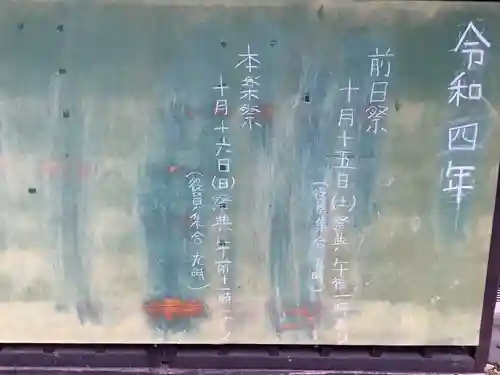 令和四年
前日祭
十月十五日(土)祭典 午後一時ヨリ
(役員集合 九時)
本楽祭
十月十六日(日)祭典 午前十一時ヨリ
(役員集合 九時)